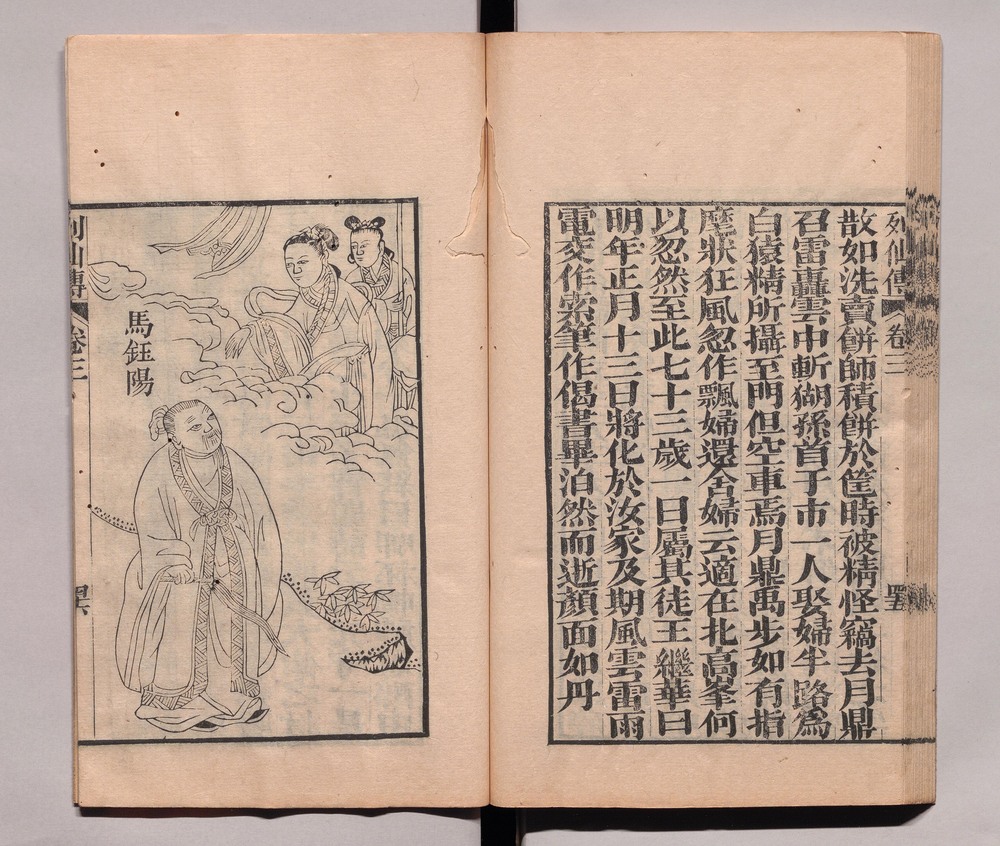 列仙傳 卷三
散如洗賣餅師積餅於筐時破精怪竊去月鼎
召雷轟雲中斬猢猻首于市一人娶婦半路為
白猿精所攝至明但空車焉月鼎禹步如有指
麾狀狂風忽作飄婦還舍婦云適在北高峯何
以忽然至此七十三歲一日屬其徒王繼華曰
明年正月十三日將化於汝家及期風雲雷雨
電交作索筆作偈書畢泊然而逝顏面如丹
馬鈺陽
列仙傳 卷三